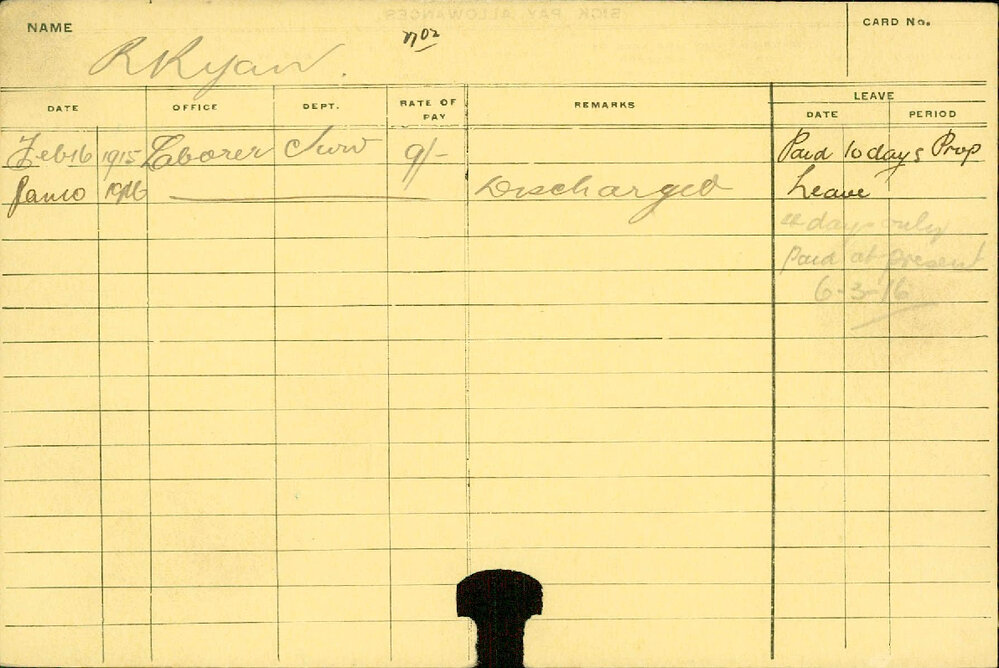 NAME
R Ryan.
No 2
CARD No.
DATE OFFICE DEPT. RATE OF PAY REMARKS LEAVE
DATE PERIOD
Feb 16 1915 Laborer Surv 9/- Paid 10 days Prop
Jan 10 1916 Discharged Leave
days only
Paid at present
6-3-16